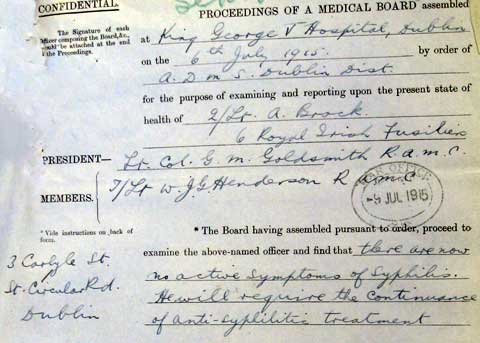 CONFIDENTIAL.
PROCEEDINGS OF A MEDICAL BOARD assembled
The Signature of each
Officer composing the Board, &c.,
should be attached at the end
of the Proceedings.
at King George V Hospital, Dublin
on the 6th July 1915. by order of
A.D.M.S. Dublin Dist.
for the purpose of examining and reporting upon the present state
health of 2/Lt. A. Brock.
6 Royal Irish Fusiliers
PRESIDENT— Lt. Col. G. M. Goldsmith R.A.M.C.
MEMBERS. T/Lt W. J. G. Henderson R.A.M.C.
WAR OFFICE
-9 JUL 1915
* Vide instructions on back of
form.
* The Board having assembled pursuant to order, proceed to
examine the above-named officer and find that there are now
no active symptoms of Syphilis.
He will require the continuance
of anti-syphilitic treatment
3 Carlyle St.
St. Circular Rd.
Dublin